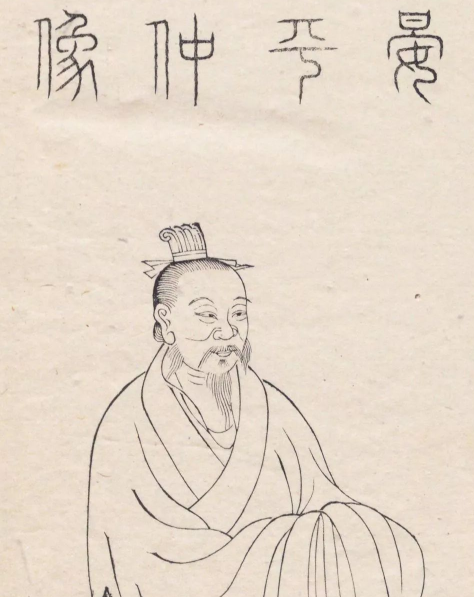 晏平仲像